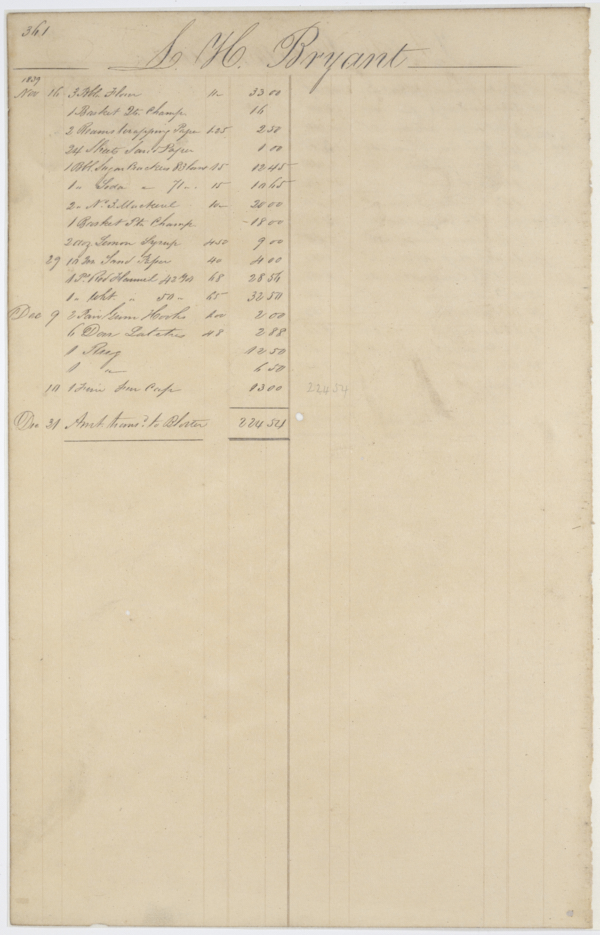 361
S. H. Bryant
1839
Nov 16 3 Bbl. Flour 11– 33 00
1 Basket Qt. Champ 16
2 Reams Wrapping Paper 1.25 2 50
24 Sheets Sand Paper 1 00
1 Bbl. Sugar Crackers 15 12 45
1 „ Soda „ 71 „ 15 10 65
2 „ No. 3 Mackerel 10– 20 00
1 Basket Pt. Champ 18 00
2 Doz Lemon Syrup 4 50 9 00
29 10 Sand Paper 40 4 00
1 Pc Red Flannel 42 Yds 68 28 56
1 „ Wht. „ 50 „ 65 32 50
Dec 9 2 Pair Hooks 1.00 2 00
6 Doz 48 2 88
1 12 50
1 „ 6 50
10 1 13 00 224 54
Dec 31 Amt. transd. to Blotter 224 54